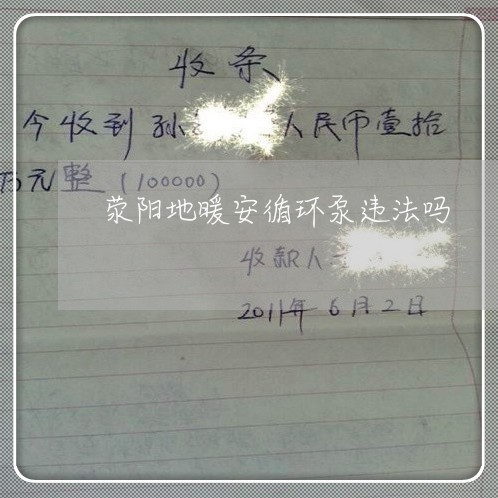 收条
今收到孙 人民币壹拾
万元整（100000）
荥阳地暖安循环泵违法吗
收款人
2011年6月2日